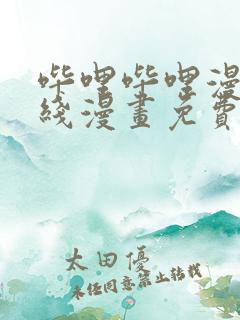 哔哩哔哩漫
綫漫畫免費
太田優
未经同意禁止转载